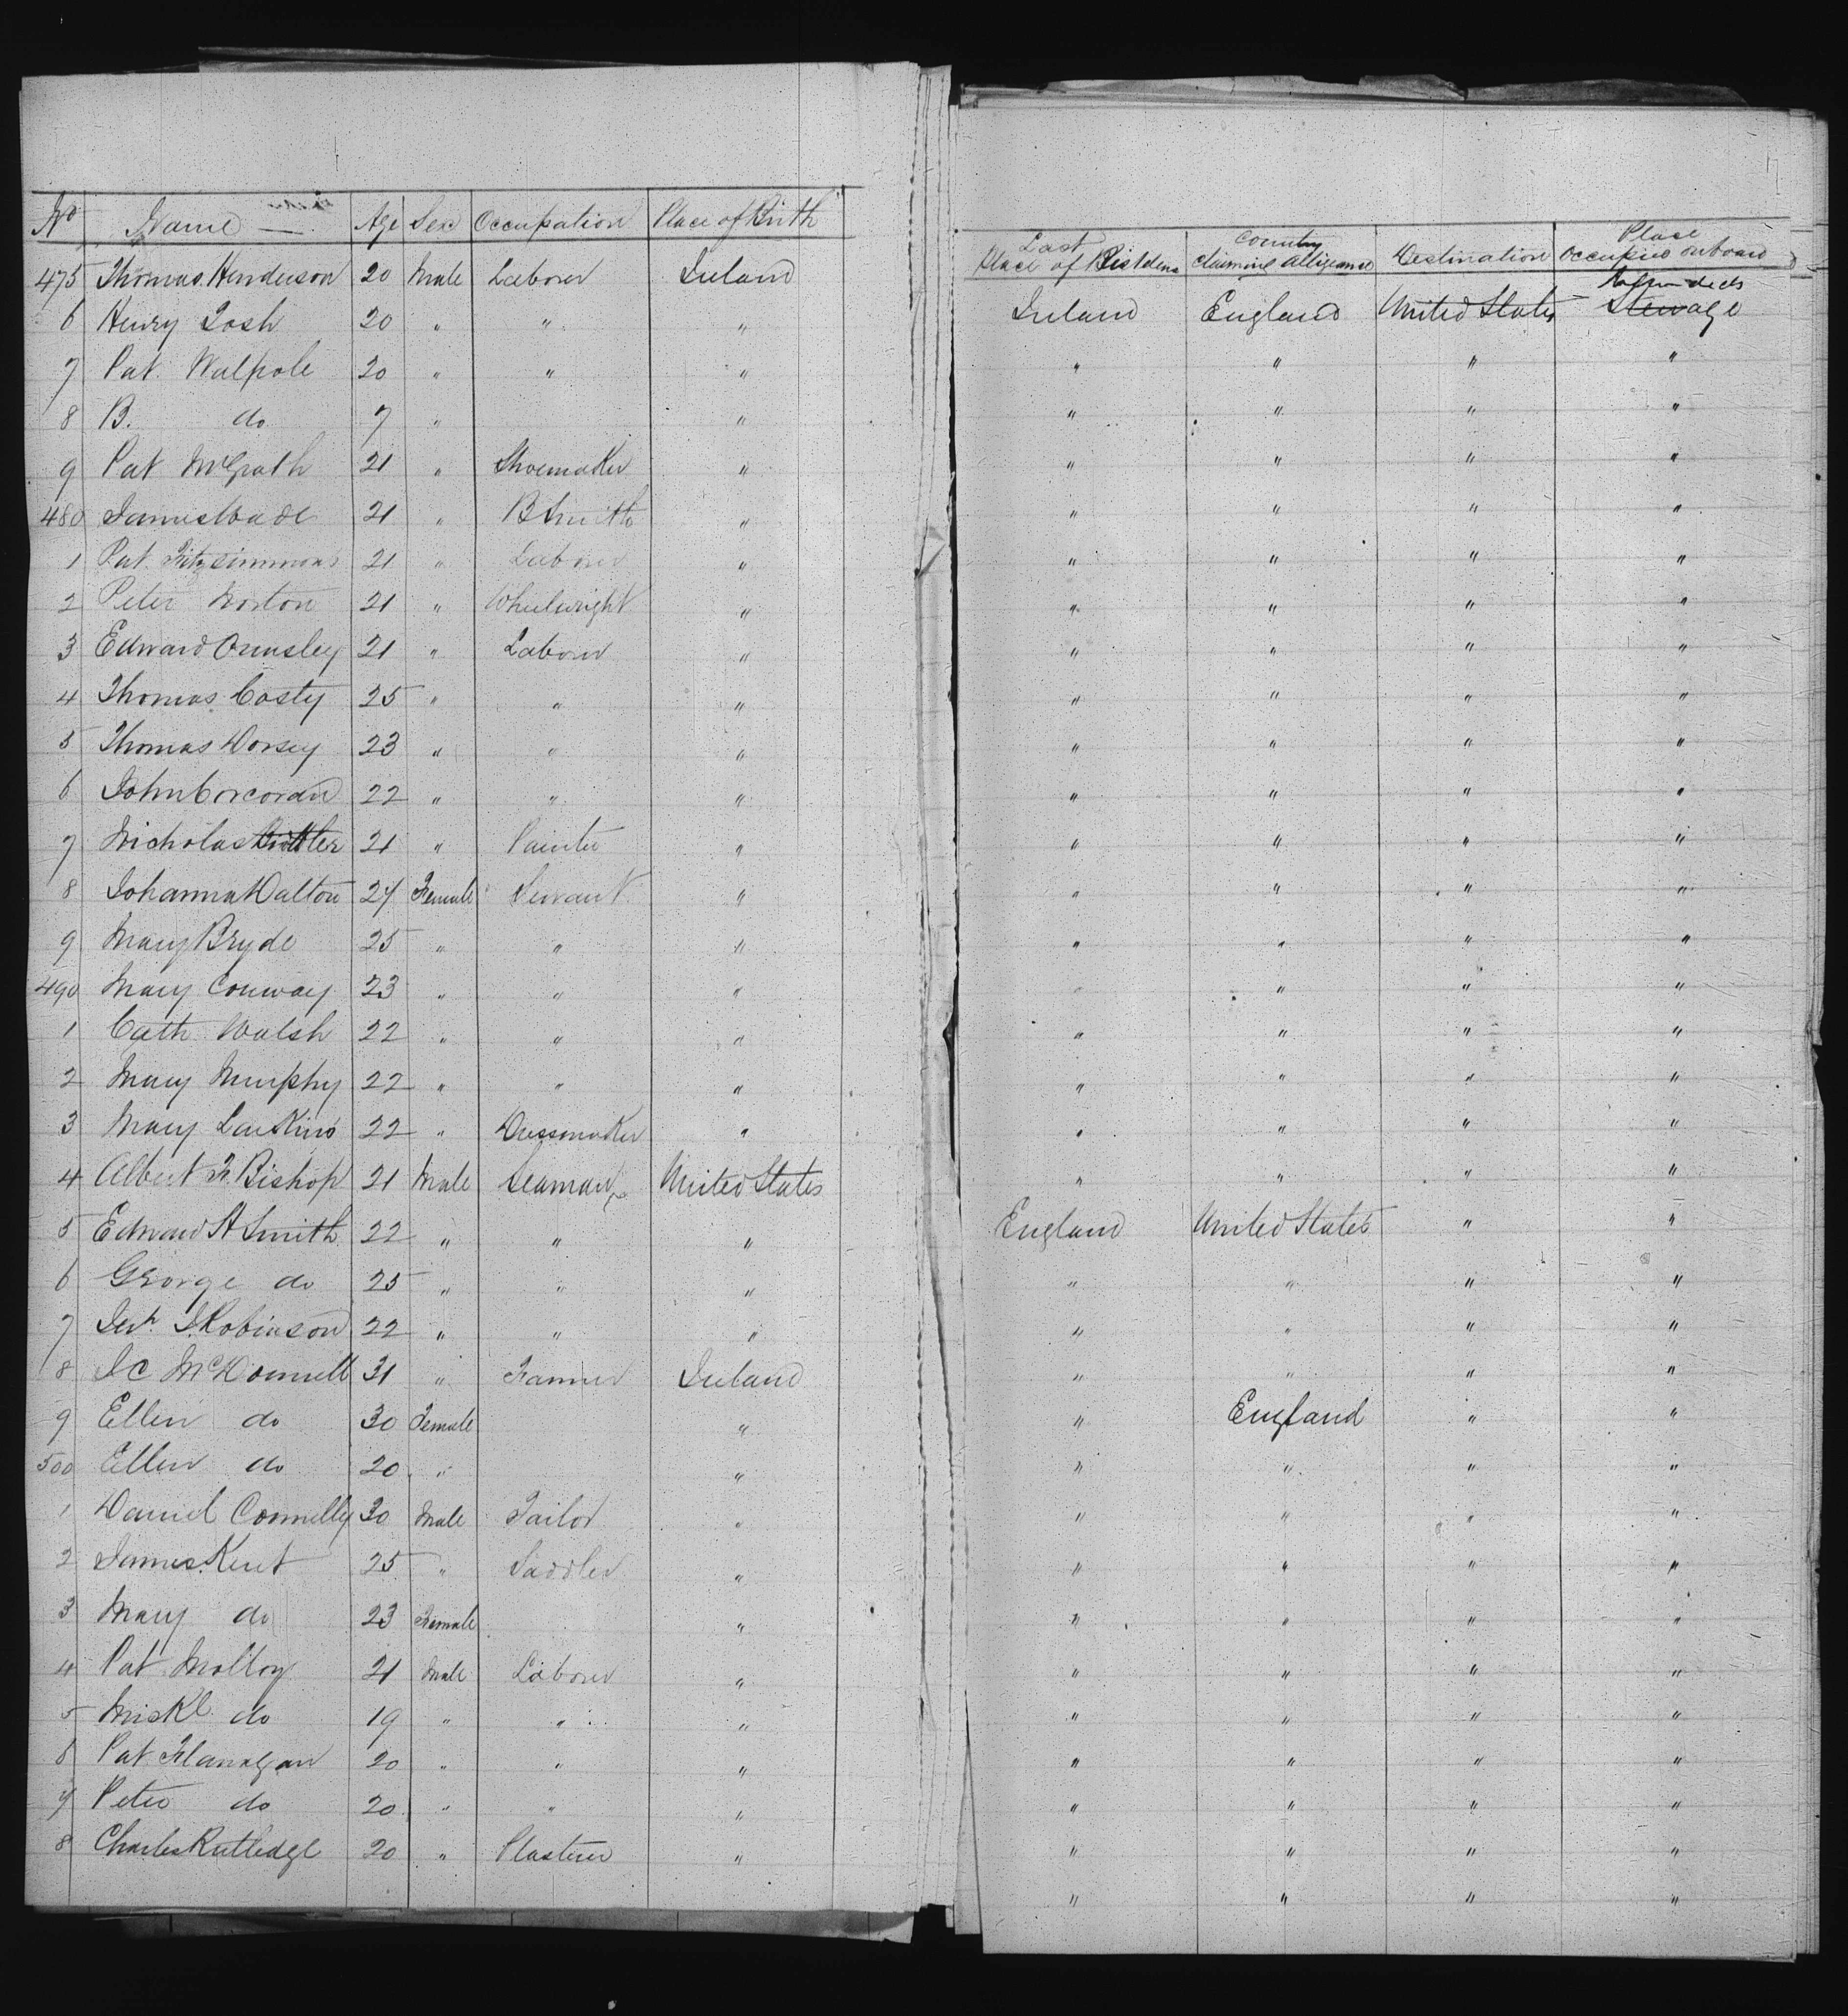 No Name — Age Sex Occupation Place of Birth
475 Thomas Henderson 20 Male Laborer Ireland
6 Henry Tosh 20 " " "
7 Pat Walpole 20 " " "
8 B. do 7 " "
9 Pat McGrath 21 " Shoemaker "
480 James Wade 21 " B Smith "
1 Pat Fitzsimmons 21 " Laborer "
2 Peter Norton 21 " Wheelwright "
3 Edward Ormsley 21 " Laborer "
4 Thomas Costy 25 " " "
5 Thomas Dorsey 23 " " "
6 John Corcoran 22 " " "
7 Nicholas 21 " Painter "
8 Johanna Dalton 24 Female Servant "
9 Mary Bryde 25 " " "
490 Mary Conway 23 " " "
1 Cath Walsh 22 " " "
2 Mary Murphy 22 " " "
3 Mary Larkins 22 " Dressmaker "
4 Albert F. Bishop 21 Male Seaman United States
5 Edward H Smith 22 " " "
6 George do 25 " " "
7 J. Robinson 22 " " "
8 J C McDonnell 31 " Farmer Ireland
9 Ellen do 30 Female "
500 Ellen do 20 " "
1 Daniel Connelly 30 Male Tailor "
2 James Kent 25 " Saddler "
3 Mary do 23 Female "
4 Pat Molloy 21 Male Laborer "
5 Mickl do 19 " " "
6 Pat Flanagan 20 " " "
7 Peter do 20 " " "
8 Charles Rutledge 20 " Plasterer "
Last Place of Residence Country Claiming Allegiance Destination Place Occupied onboard
Ireland England United States Steerage
" " " "
" " " "
" " " "
" " " "
" " " "
" " " "
" " " "
" " " "
" " " "
" " " "
" " " "
" " " "
" " " "
" " " "
" " " "
" " " "
" " " "
" " " "
England United States " "
" " " "
" " " "
" " " "
" England " "
" " " "
" " " "
" " " "
" " " "
" " " "
" " " "
" " " "
" " " "
" " " "
" " " "